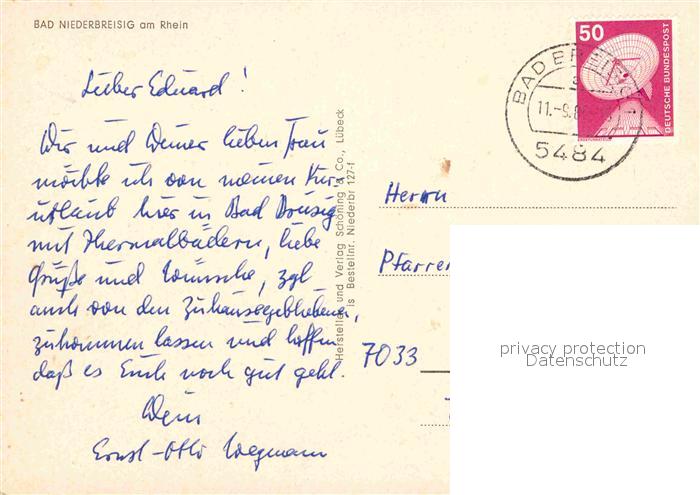 BAD NIEDERBREISIG am Rhein
Lieber Eduard!
Dir und Deiner lieben Frau
möchte ich von meinem Kur-
urlaub hier in Bad Breisig
mit Thermalbädern, liebe
Grüße und Wünsche, zgl
auch von den Zuhausegebliebenen,
zukommen lassen und hoffen
daß es Euch noch gut geht.
Dein
Ernst-Otto Wegmann
Hersteller und Verlag Schöning & Co., Lübeck
is Bestellnr. Niederbr 127-f
50
DEUTSCHE BUNDESPOST
BAD
11.-9.8
5484
Herrn
Pfarrer
7033
privacy protection
Datenschutz